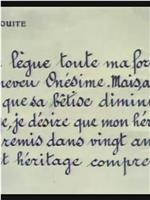 OUITE
lègue toute ma for
neveu Onésime. Mais a
que sa bêtise diminu
e, je désire que mon hér
remis dans vingt an
et héritage compre